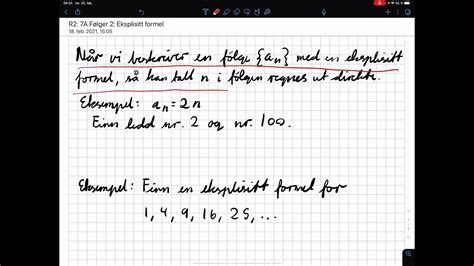 R2: 7A Følger 2: Eksplisitt formel
18. feb. 2021, 15:05
Når vi beskriver en følge {aₙ} med en eksplisitt
formel, så kan tall n i følgen regnes ut direkte.
Eksempel: aₙ = 2n
Finn ledd nr. 2 og nr. 100.
Eksempel: Finn en eksplisitt formel for
1, 4, 9, 16, 25, ...